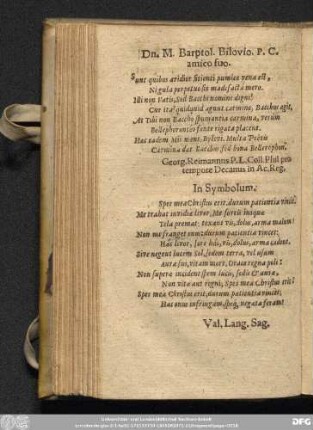 Dn. M. Barptol. Bilovio. P. C.
amico suo.
Sunt quibus aridior sitienti pumice vena est,
Ni gula perpetuo sit madefacta mero.
Hi non Vatis, sed Bacchi nomine digni:
Cum ita quidquid agunt carmine, Bacchus agit,
At Tibi non Baccho spumantia carmina, verùm
Bellephorontis fonte rigata placent.
Hac eadem Mî mens, Bylovi. Multa Poëtis
Carmina dat Bacchus, sed bona Bellerophon.
Georg. Reimannus P. L. Coll. Phil. pro
tempore Decanus in Ac. Reg.
In Symbolum.
Spes mea Christus erit, durum patientia vincit.
Me trahat invidiæ livor, Me sortis iniquæ
Tela premat: texant vis, dolus, arma malum!
Non me franget onus; durum patientia vincet:
Hac livor, sors, vis, dolus, arma cadent.
Sive negent lucem Sol, sedem terra, vel usum
auræ sus, vitam
Non supera incident spem lucis, sedis &
Non vitæ aut regni; Spes mea Christus erit!
Spes mea Christus erit, durum patientia vincit:
Hac onus infringam, spe, negata feram!
Val. Lang. Sag.